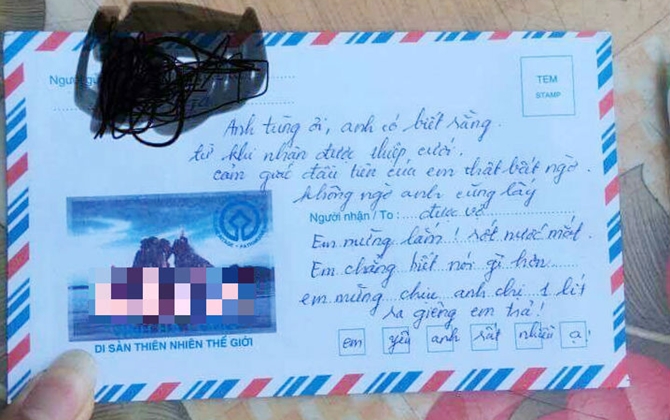 Người gửi
TEM
STAMP
Anh tùng ơi, anh có biết rằng
từ khi nhận được thiệp cưới.
cảm giác đầu tiên của em thật bất ngờ.
không ngờ anh cũng lấy
Người nhận / To : được vợ
Em mừng lắm ! rớt nước mắt.
Em chẳng biết nói gì hơn
em mừng chiu anh chị 1 lít
ra giêng em trả !
em yêu anh rất nhiều ạ!
DI SẢN THIÊN NHIÊN THẾ GIỚI